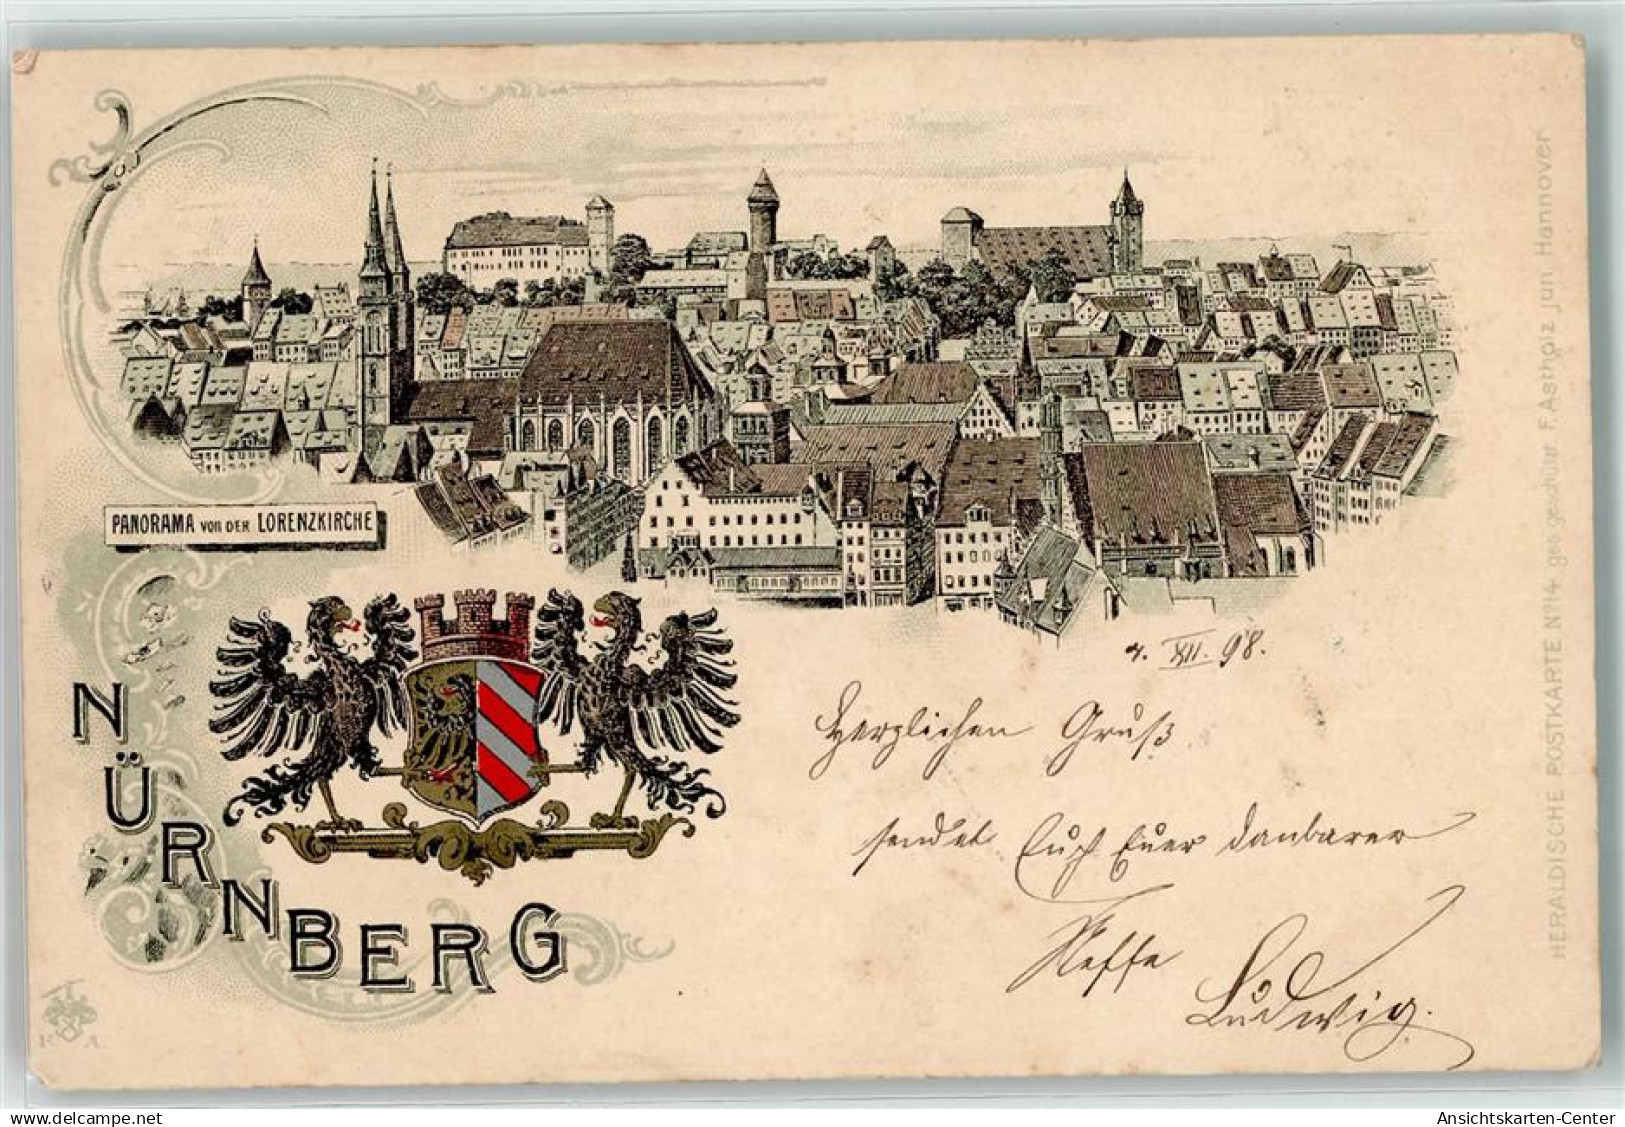 PANORAMA VON DER LORENZKIRCHE
NÜRNBERG
F. A.
XII. 98.
Herzlichen Gruß
sendet Euch Euer dankbarer
Neffe
Ludwig.
HERALDISCHE POSTKARTE No 14 ges. geschützt F. Astholz jun. Hannover
Ansichtskarten-Center